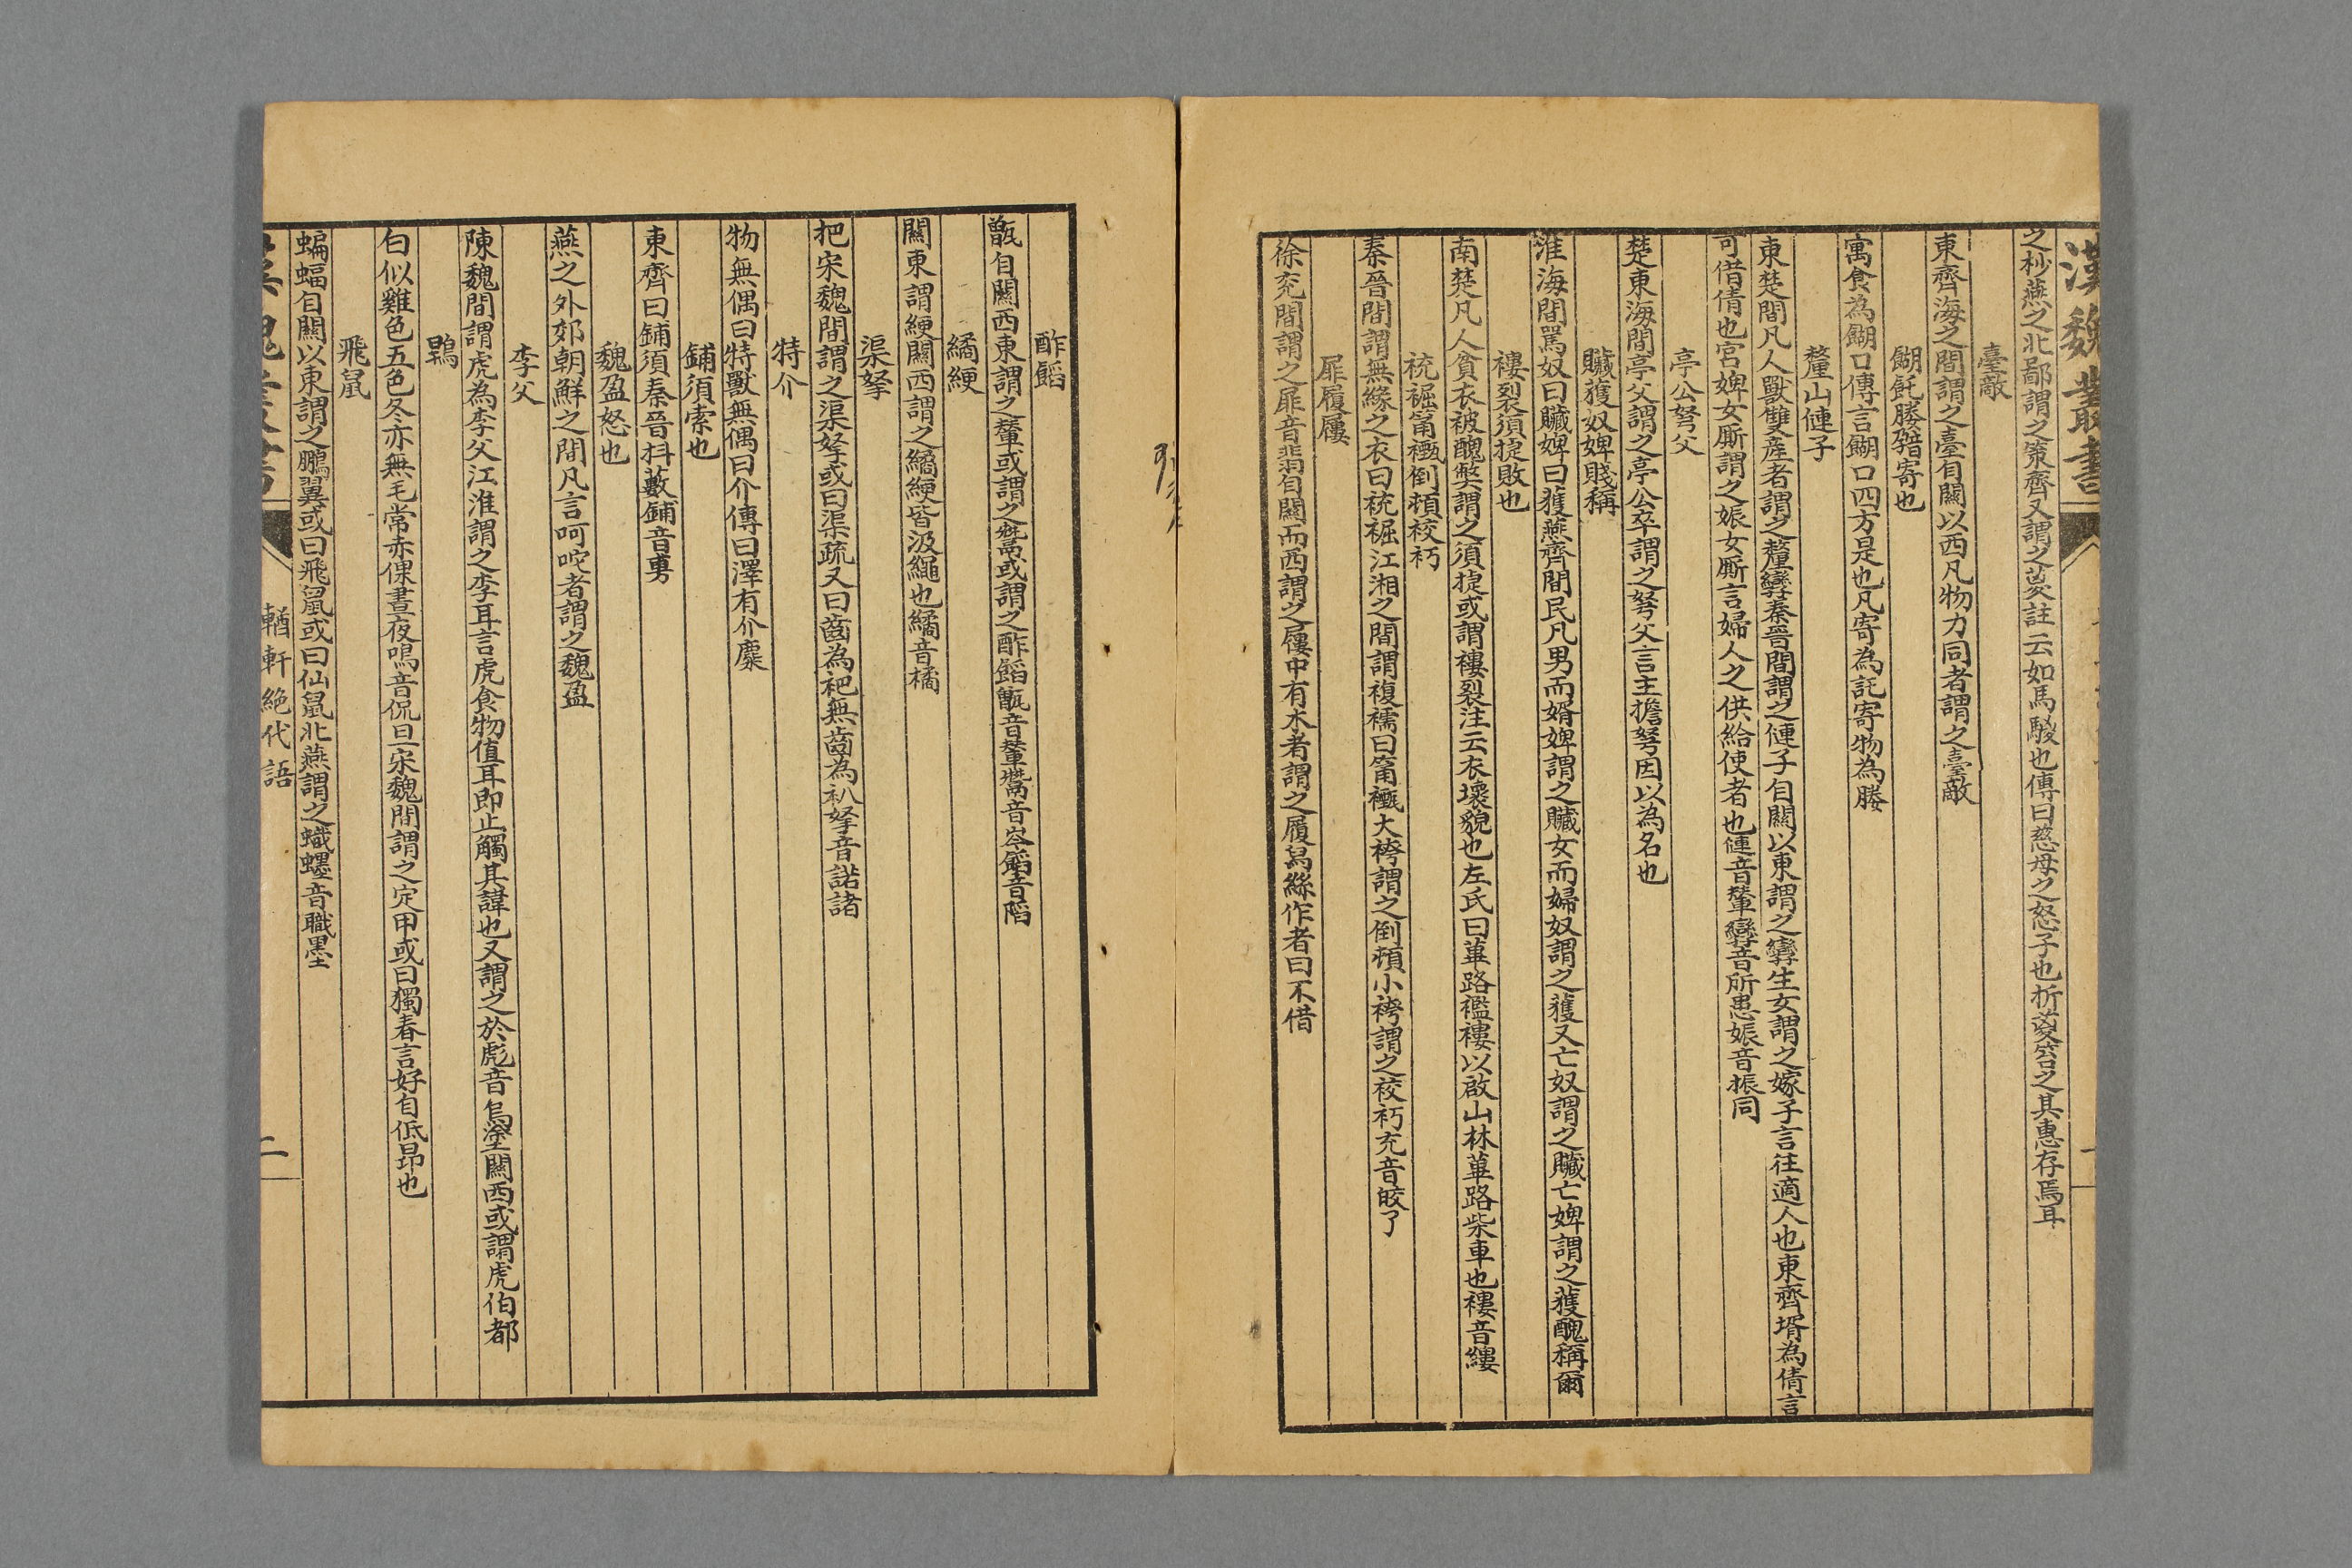 漢魏叢書
之杪燕之北鄙謂之策齊又謂之茇註云如馬騣也傳曰慈母之怒子也折葼笞之其惠存焉耳
臺敵
東齊海之間謂之臺自關以西凡物力同者謂之臺敵
餬寄也
寓食為餬口傳言餬口四方是也凡寄為託寄物為媵
釐孿僆子
東楚間凡人獸雙產者謂之釐孿秦晉間謂之僆子自關以東謂之孿生女謂之嫁子言往適人也東齊壻為倩言
可借倩也官婢女廝謂之娠女廝言婦人之供給使者也僆音輦孿音所患娠音振同
亭公弩父
楚東海間亭父謂之亭公卒謂之弩父言主擔弩因以為名也
臧獲奴婢賤稱
淮海間罵奴曰臧婢曰獲燕齊間民凡男而婿婢謂之臧女而婦奴謂之獲又亡奴謂之臧亡婢謂之獲醜稱爾
褸裂須捷敗也
南楚凡人貧衣被醜獘謂之須捷或謂褸裂注云衣壞貌也左氏曰蓽路襤褸以啟山林蓽路柴車也褸音縷
裗裾筩褹倒頓校衦
秦晉間謂無緣之衣曰裗裾江湘之間謂複襦曰筩褹大袴謂之倒頓小袴謂之校衦充音皎了
屝履屨
徐兖間謂之屝音翡自關而西謂之屨中有木者謂之履舄絲作者曰不借
酢䤾
甑自關西東謂之甗或謂之鬵或謂之酢䤾
繘綆
關東謂綆關西謂之繘綆皆汲繩也繘音橘
渠挐
把宋魏間謂之渠挐或曰渠疏又曰齒為杷無齒為朳挐音諾諸
特介
物無偶曰特獸無偶曰介傳曰澤有介麋
鋪須索也
東齊曰鋪須秦晉抖藪鋪音旉
魏盈怒也
燕之外郊朝鮮之間凡言呵咜者謂之魏盈
李父
陳魏間謂虎為李父江淮謂之李耳言虎食物值耳即止觸其諱也又謂之於彪音烏塗關西或謂虎伯都
鶡
白似雞色五色冬亦無毛常赤倮晝夜鳴音侃旦宋魏間謂之定甲或曰獨舂言好自低昂也
飛鼠
蝙蝠自關以東謂之鵩翼或曰飛鼠或曰仙鼠北燕謂之蟙䘃音職墨
輶軒絶代語
二